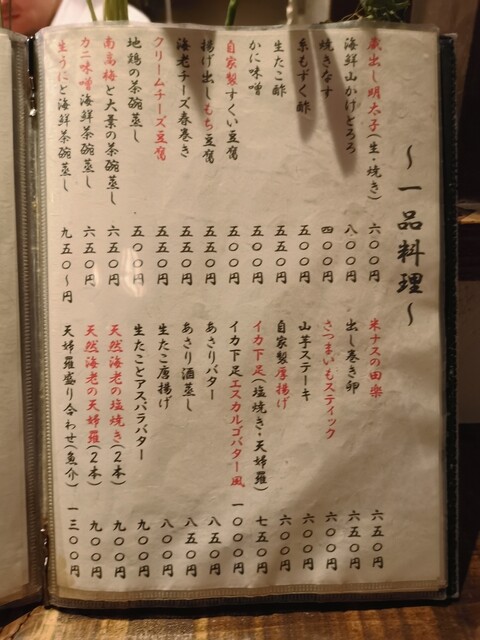 〜一品料理〜
蔵出し明太子(生・焼き) 六〇〇円
海鮮山かけとろろ 八〇〇円
焼きなす 四〇〇円
糸もずく酢 五〇〇円
生たこ酢 五五〇円
かに味噌 五五〇円
自家製すくい豆腐 五〇〇円
揚げ出しもち豆腐 五五〇円
海老チーズ春巻き 五五〇円
クリームチーズ豆腐 五五〇円
地鶏の茶碗蒸し 五〇〇円
南高梅と大葉の茶碗蒸し 六五〇円
カニ味噌海鮮茶碗蒸し 六五〇円
生うにと海鮮茶碗蒸し 九五〇〜円
米ナスの田楽 六五〇円
出し巻き卵 六五〇円
さつまいもスティック 六〇〇円
山芋ステーキ 六〇〇円
自家製厚揚げ 六〇〇円
イカ下足(塩焼き・天婦羅) 七五〇円
イカ下足エスカルゴバター風 一〇〇〇円
あさりバター 八五〇円
あさり酒蒸し 八五〇円
生たこ唐揚げ 八〇〇円
生たことアスパラバター 九〇〇円
天然海老の塩焼き(2本) 九〇〇円
天然海老の天婦羅(2本) 九〇〇円
天婦羅盛り合わせ(魚介) 一三〇〇円